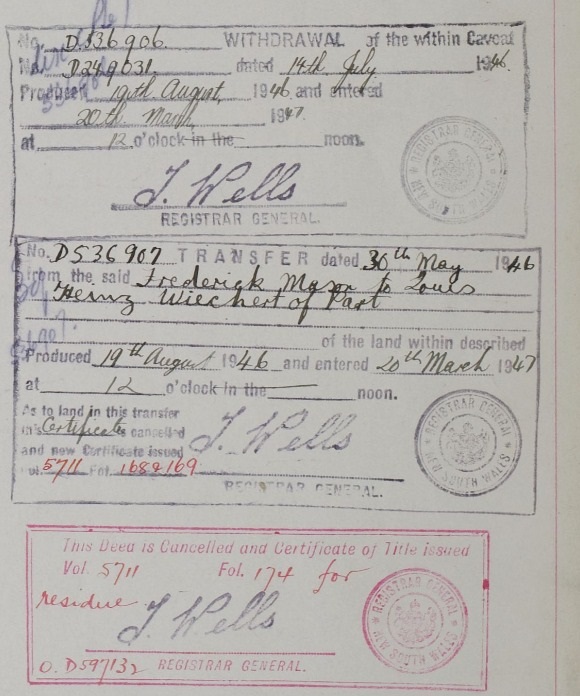 No. D536906 WITHDRAWAL of the within Caveat
No. D249031 dated 14th July 1946
Produced 19th August, 1946 and entered
20th March, 1947.
at 12 o'clock in the noon.
J. Wells
REGISTRAR GENERAL.
REGISTRAR GENERAL
No. D536907 TRANSFER dated 30th May 1946
from the said Frederick Mason to Louis
Heinz Wiechert of Part
of the land within described
Produced 19th August 1946 and entered 20th March 1947
at 12 o'clock in the noon.
As to land in this transfer
this Certificate is cancelled
and new Certificate issued
Vol. 5711 Fol. 168&169
J. Wells
REGISTRAR GENERAL.
REGISTRAR GENERAL
NEW SOUTH WALES
This Deed is Cancelled and Certificate of Title issued
Vol. 5711 Fol. 174 for
residue
J. Wells
O. D597132 REGISTRAR GENERAL.
REGISTRAR GENERAL
NEW SOUTH WALES